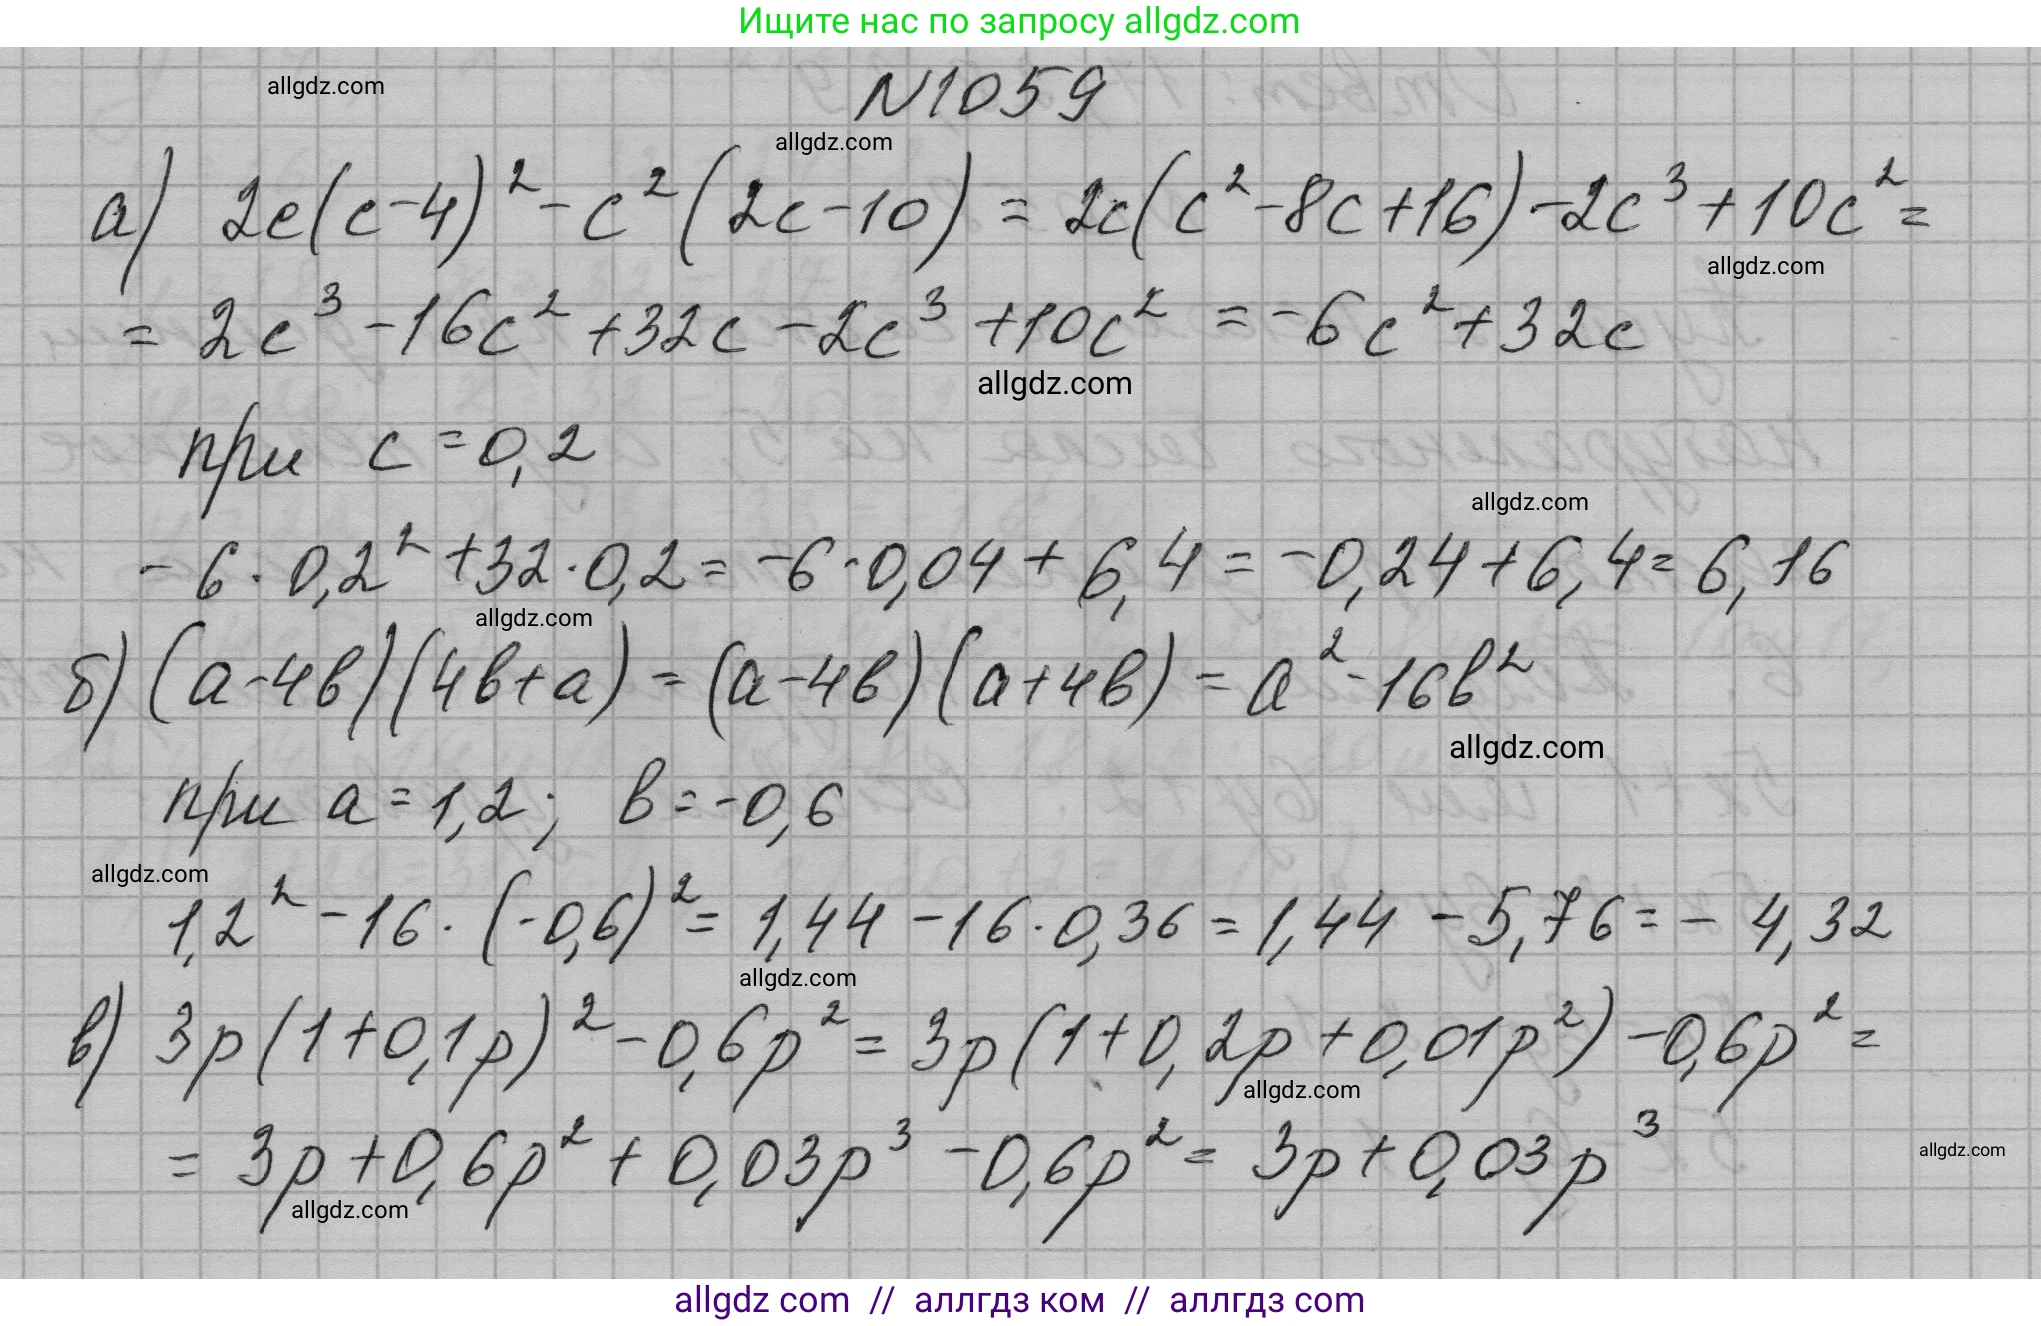 Ищите нас по запросу allgdz.com
allgdz.com
N1059
allgdz.com
а) 2c(c-4)² - c²(2c-10) = 2c(c²-8c+16) - 2c³ + 10c² =
allgdz.com
= 2c³ - 16c² + 32c - 2c³ + 10c² = -6c² + 32c
allgdz.com
при c = 0,2
allgdz.com
-6 · 0,2² + 32 · 0,2 = -6 · 0,04 + 6,4 = -0,24 + 6,4 = 6,16
allgdz.com
б) (a-4в)(4в+a) = (a-4в)(a+4в) = a² - 16в²
allgdz.com
при a = 1,2; в = -0,6
allgdz.com
1,2² - 16 · (-0,6)² = 1,44 - 16 · 0,36 = 1,44 - 5,76 = - 4,32
allgdz.com
в) 3p(1+0,1p)² - 0,6p² = 3p(1+0,2p+0,01p²) - 0,6p² =
allgdz.com
= 3p + 0,6p² + 0,03p³ - 0,6p² = 3p + 0,03p³
allgdz.com
allgdz.com
allgdz com // аллгдз ком // аллгдз com